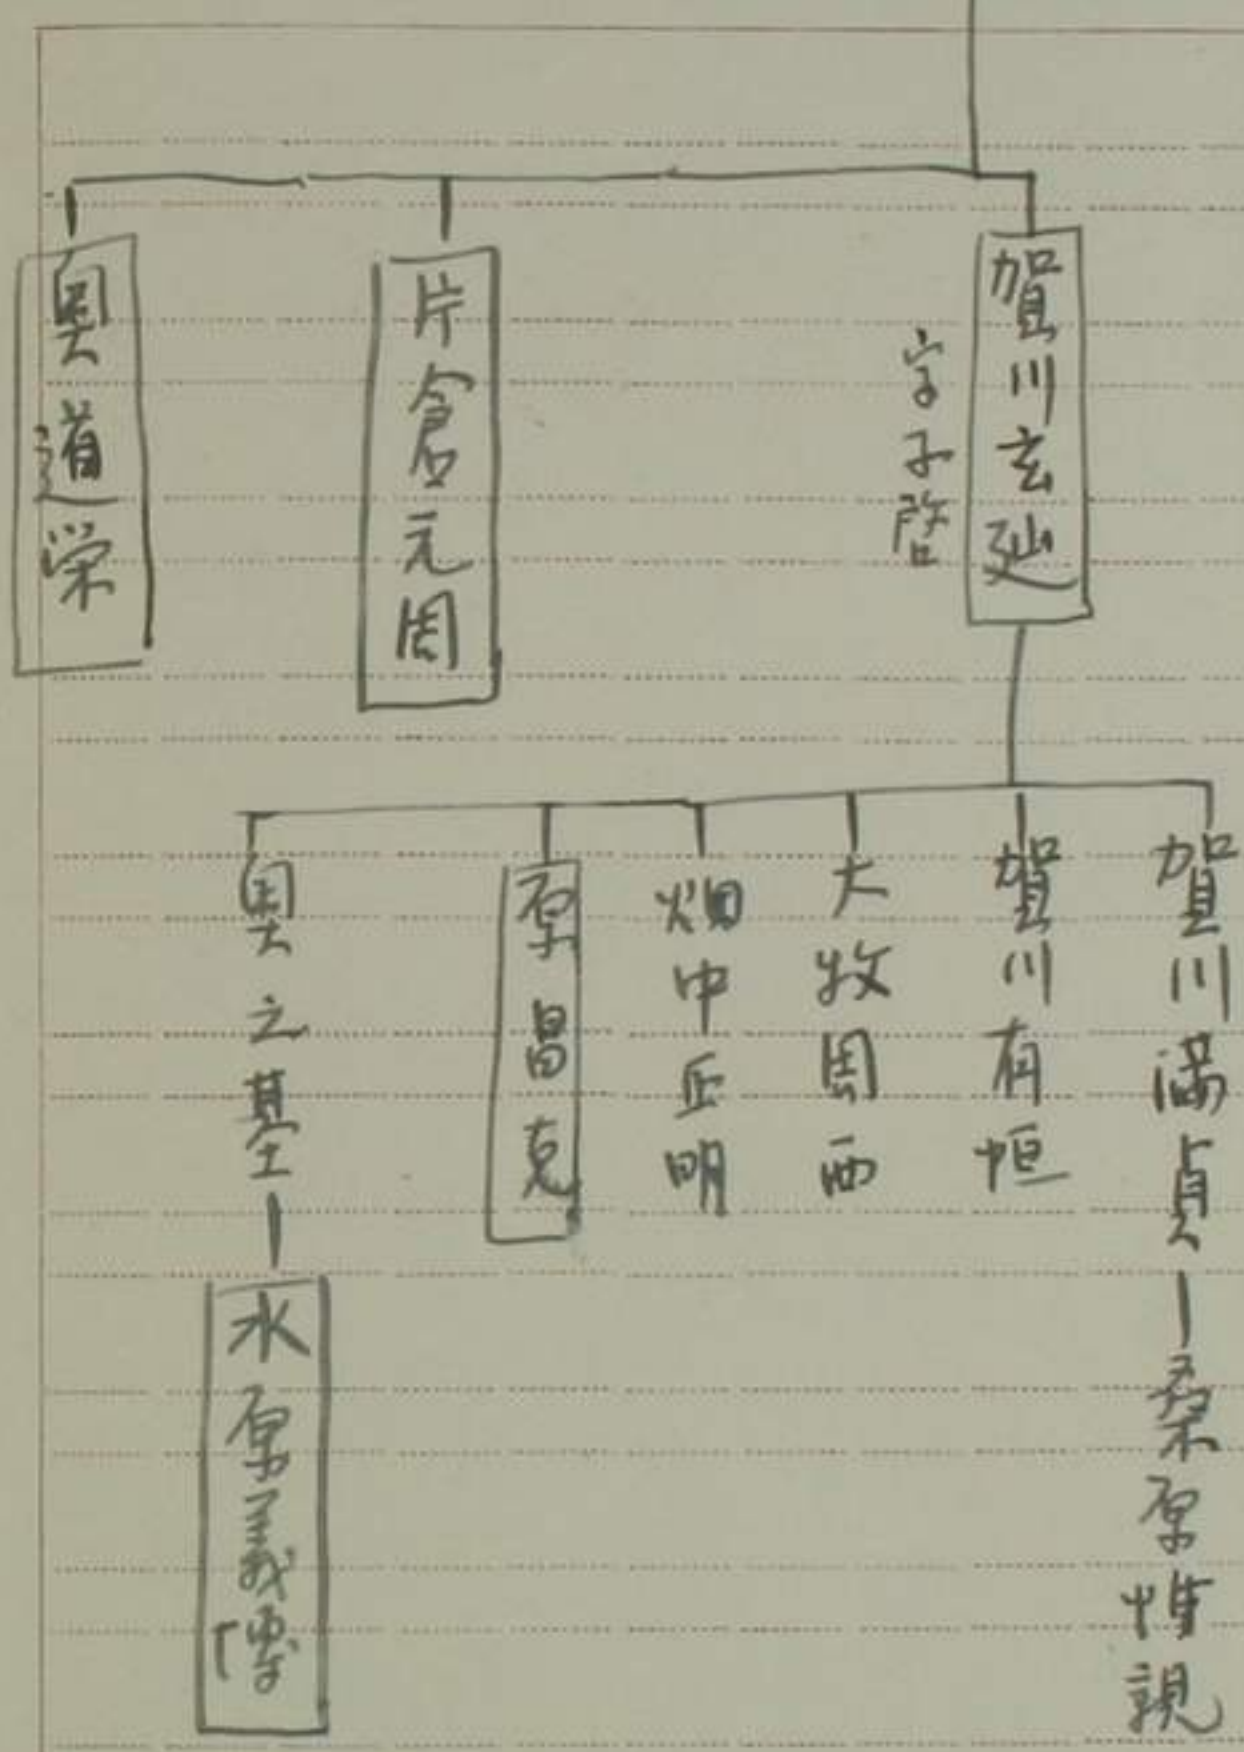 賀川玄迪
字子啓
片倉元周
奥道栄
賀川満貞
桑原惟親
賀川有恒
大牧周西
畑中正明
原昌克
奥之基
水原義博